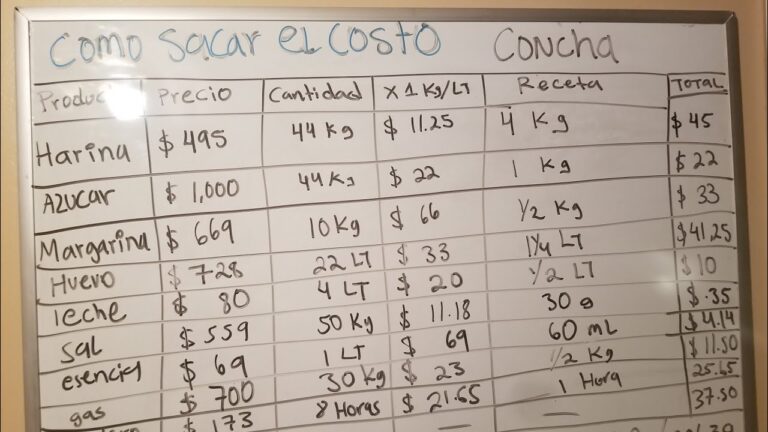 Como sacar el costo Concha
Produc Precio Cantidad x 1 Kg/LT Receta TOTAL
Harina $ 495 44 Kg $ 11.25 4 Kg $ 45
AZucar $ 1,000 44 Kg $ 22 1 Kg $ 22
Margarina $ 669 10 Kg $ 66 1/2 Kg $ 33
Huevo $ 728 22 LT $ 33 1 1/4 LT $ 41.25
leche $ 80 4 LT $ 20 1/2 LT $ 10
sal $ 559 50 Kg $ 11.18 30 g $ .35
esencia $ 69 1 LT $ 69 60 mL $ 4.14
gas $ 700 30 Kg $ 23 1/2 Kg $ 11.50
$ 173 8 Horas $ 21.65 1 Hora 25.65
37.50